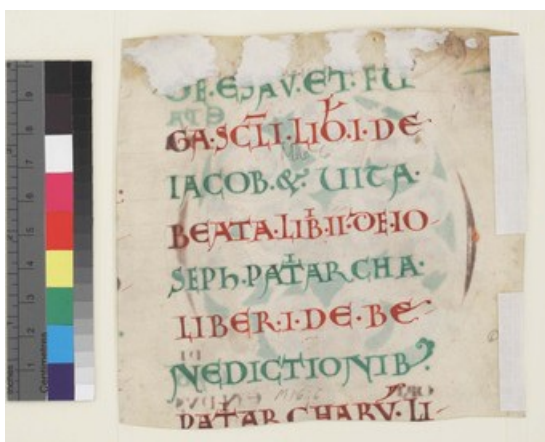 DE·ESAV·ET·FU
GA·SCĪLI·LIB·I·DE
IACOB·&·UITA·
BEATA·LIB·II·DE·IO
SEPH·PATARCHA·
LIBER·I·DE·BE
NEDICTIONIB
PATARCHARV·LI